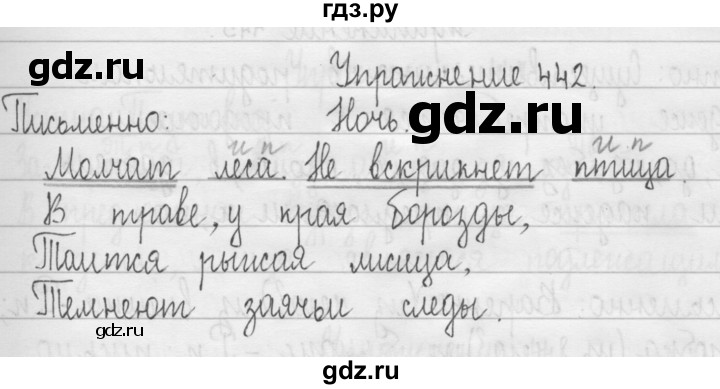 гдз.ру
gdz.ru
Упражнение 442.
gdz.ru
Письменно: Ночь.
и п и п
Молчат леса. Не вскрикнет птица
В траве, у края борозды,
Таится рыжая лисица,
Темнеют заячьи следы.
gdz.ru
gdz.ru
гдз.ру